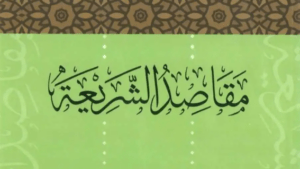 مَقَاصِدُ الشَّرِيْعَةِ